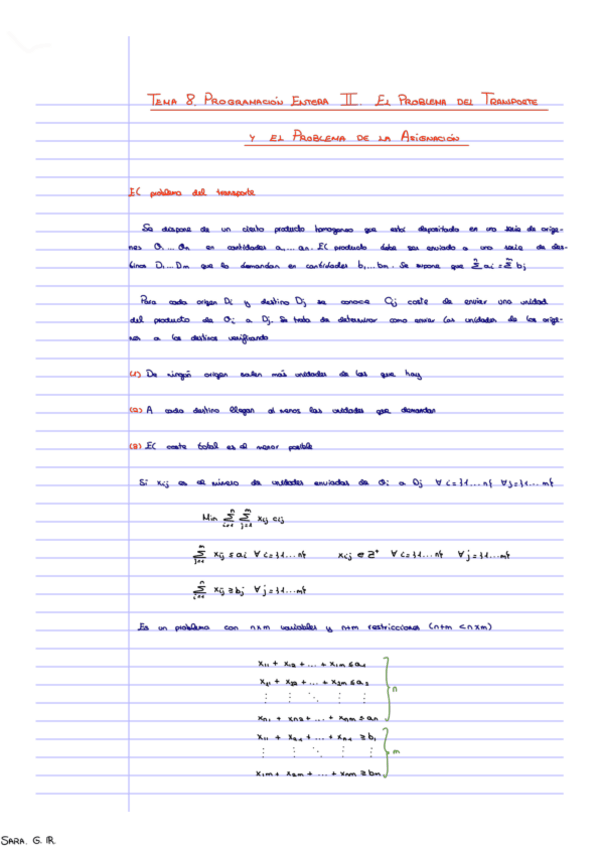 TEMA 8. PROGRAMACIÓN ENTERA II. EL PROBLEMA DEL TRANSPORTE
Y EL PROBLEMA DE LA ASIGNACIÓN
El problema del transporte
Se dispone de un cierto producto homogeneo que está depositado en una serie de oríge-
nes O₁...Oₙ en cantidades a₁...aₙ. El producto debe ser enviado a una serie de des-
tinos D₁...Dₘ que lo demandan en cantidades b₁...bₘ. Se supone que Σ aᵢ = Σ bⱼ
Para cada origen Oᵢ y destino Dⱼ se conoce Cᵢⱼ coste de enviar una unidad
del producto de Oᵢ a Dⱼ. Se trata de determinar como enviar las unidades de los oríge-
nes a los destinos verificando
(1) De ningún origen salen más unidades de las que hay
(2) A cada destino llegan al menos las unidades que demandan
(3) El coste total es el menor posible
Si xᵢⱼ es el número de unidades enviadas de Oᵢ a Dⱼ ∀ i = {1...n} ∀ j = {1...m}
Min Σᵢ₌₁ⁿ Σⱼ₌₁ᵐ xᵢⱼ cᵢⱼ
Σⱼ₌₁ᵐ xᵢⱼ ≤ aᵢ ∀ i = {1...n} xᵢⱼ ∈ Z⁺ ∀ i = {1...n} ∀ j = {1...m}
Σᵢ₌₁ⁿ xᵢⱼ ≥ bⱼ ∀ j = {1...m}
Es un problema con n×m variables y n+m restricciones (n+m < n×m)
x₁₁ + x₁₂ + ... + x₁ₘ ≤ a₁
x₂₁ + x₂₂ + ... + x₂ₘ ≤ a₂
⋮ ⋮ ⋱ ⋮ ⋮ n
xₙ₁ + xₙ₂ + ... + xₙₘ ≤ aₙ
x₁₁ + x₂₁ + ... + xₙ₁ ≥ b₁
⋮ ⋮ ⋱ ⋮ ⋮ m
x₁ₘ + x₂ₘ + ... + xₙₘ ≥ bₘ
SARA. G. IR.